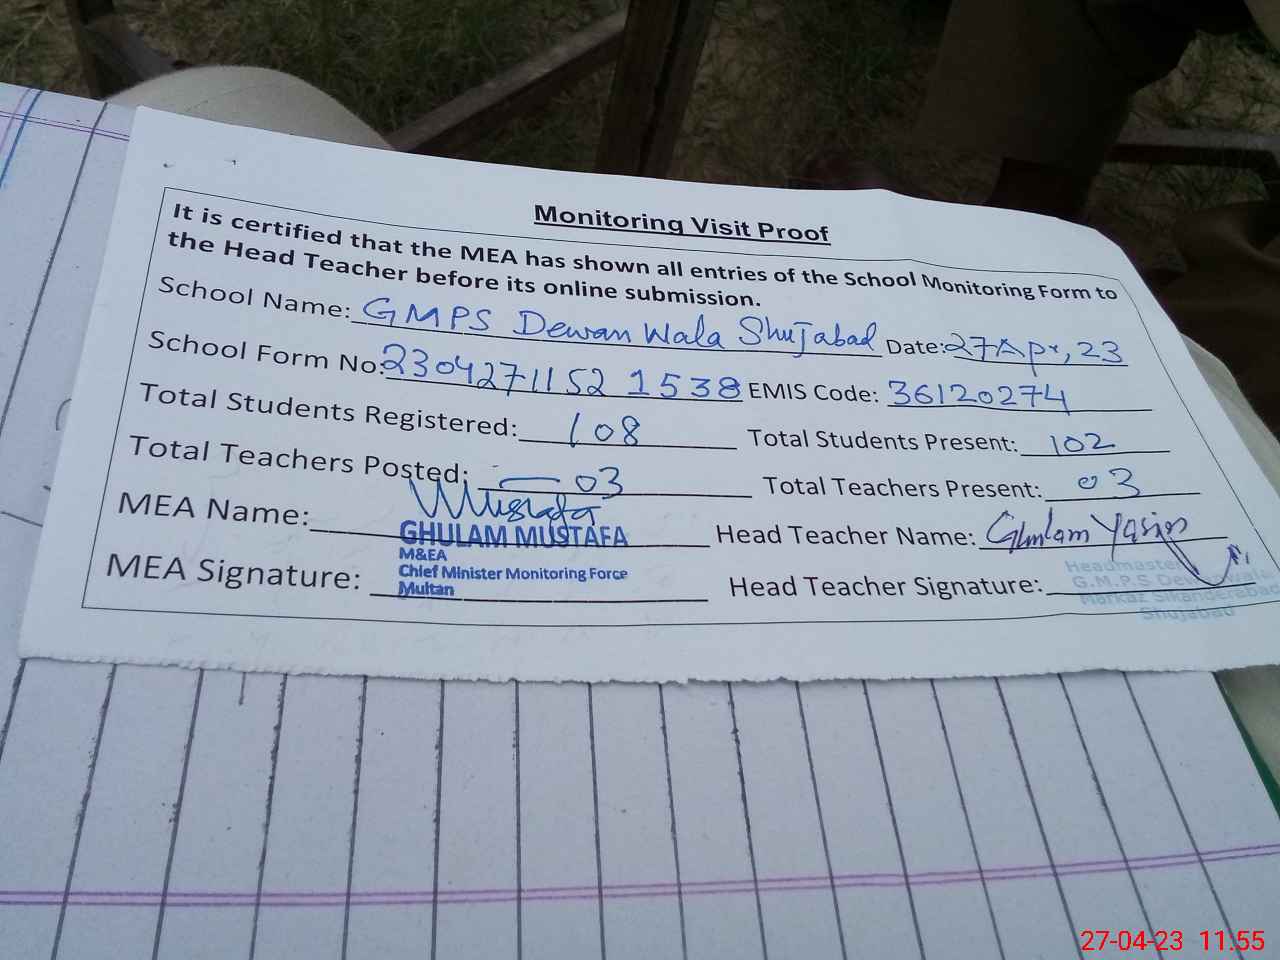 Monitoring Visit Proof
It is certified that the MEA has shown all entries of the School Monitoring Form to
the Head Teacher before its online submission.
School Name: GMPS Dewan Wala Shujabad Date: 27 Apr, 23
School Form No: 2304271152 1538 EMIS Code: 36120274
Total Students Registered: 108 Total Students Present: 102
Total Teachers Posted: 03 Total Teachers Present: 03
Mustafa
MEA Name: GHULAM MUSTAFA Head Teacher Name: Ghulam Yasin
M&EA
Chief Minister Monitoring Force
MEA Signature: Multan Head Teacher Signature:
Headmaster
G.M.P.S Dewan Wala
Markaz Sikanderabad
Shujabad
27-04-23 11.55